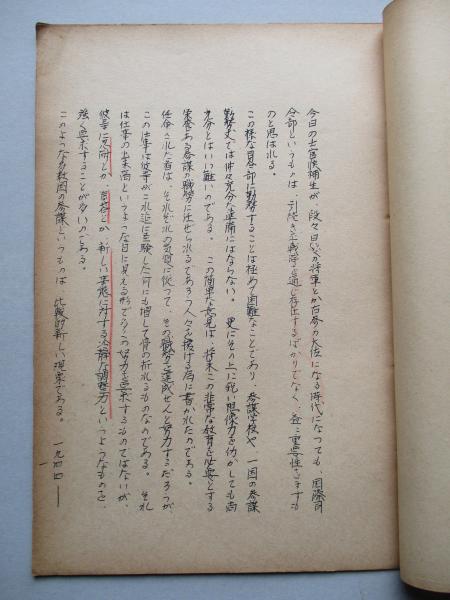 今日の士官候補生が、段々白い髪の将軍とか古参の大佐になる時代になっても、国際司
令部というものは、引続き不戦時を通じ存在するばかりでなく、益々重要性をますも
のと思はれる。
この様な司令部に勤務することは極めて困難なことであり、参謀学校や一国の参謀
勤務丈では仲々充分な準備にはならない。更にその上に鋭い想像力を働かしても尚
充分とはいい難いのである。この簡単な意見は、将来この非常な教育を必要とする
栄誉ある参謀の職務に任ぜられるであろう人々を援ける為に書かれたのである。
任命された者は、それぞれの気質に従って、その職務を達成せんと努力するだろうが、
この仕事は彼等がこれ迄に経験した何にも増して骨の折れるものなのである。それ
は仕事の出来高というような目に見える形で多くの努力を要求するものではないが、
彼等に忍耐とか、寛容とか、新しい事態に対する冷静な調整力というようなものを、
強く要求することが多いのである。
このような多数国の参謀というものは、比較的新しい現象である。一九四四—